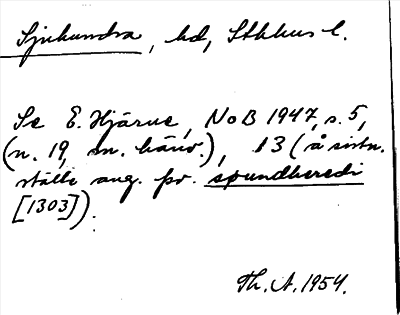 Sjuhundra, hd, Sthlms l.
Se E. Hjärne, NoB 1947, s. 5,
(n. 19, m. hänv.), 13 (å sistn.
ställe ang. fv. spundheredi
[1303]).
Th. A. 1954.